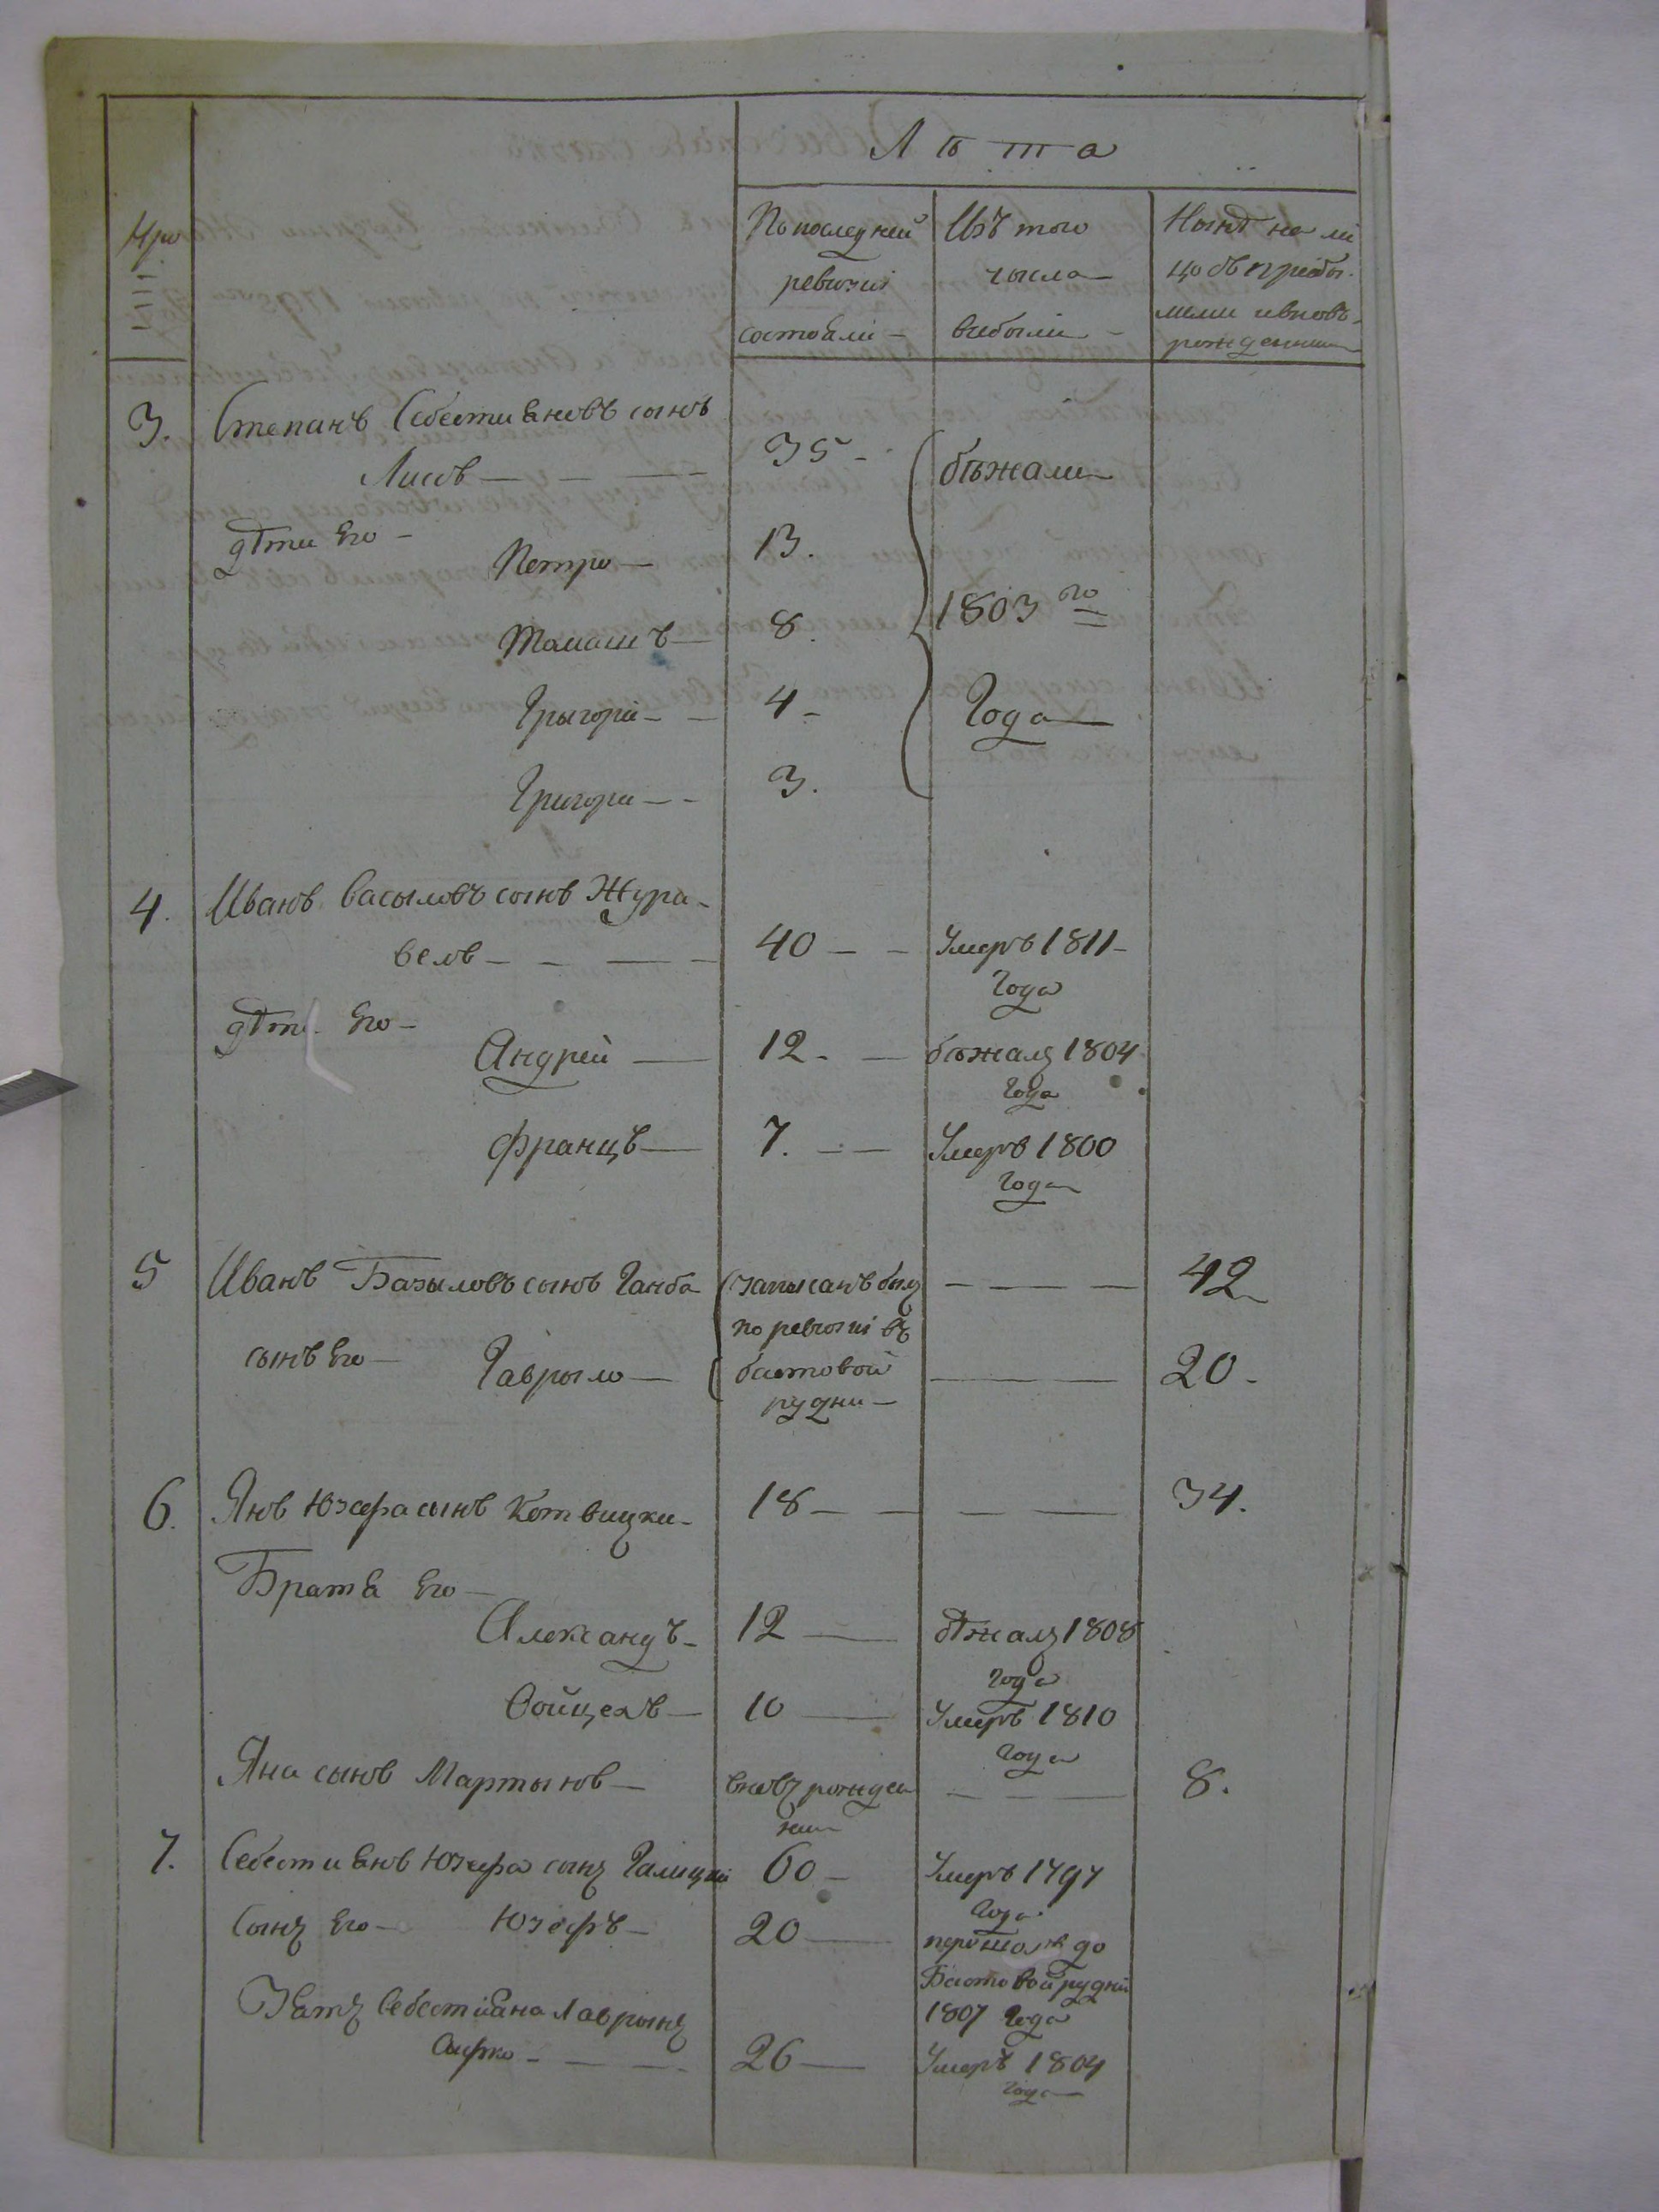 Лѣта
Нро
По последней
ревизіи
состояли —
Изъ того
числа —
выбыли —
Нынѣ на ли
цо съ прибы-
лыми и вновь
рожденными
3. Степанъ Себестияновъ сынъ
Лисъ — 35 — бѣжали
дѣти Его —
Петро — 13.
Томашъ — 8. 1803 го
Грыгори — 4 — Года
Григори — 3.
4. Иванъ Васыловъ сынъ Жура-
вель — 40 — Умеръ 1811
Года
дѣти Его —
Андрей — 12. — бѣжалъ 1804
Года
Францъ — 7. — Умеръ 1800
Года
5 Иванъ Базыловъ сынъ Ганба (записанъ былъ — 42
по ревизіи въ
сынъ Его — Гаврыло — бастовой — 20 —
рудни —
6. Янъ Юзефа сынъ Котвицки — 18 — 34.
Братя Его —
Александъ — 12 — бѣжалъ 1808
Года
Войцехъ — 10 — Умеръ 1810
Года
Яна сынъ Мартынъ — вновь рожден — 8.
ный
7. Себестиянъ Юзефа сынъ Галицкий 60 — Умеръ 1797
Года
Сынъ Его — Юзефъ — 20 — перешолъ до
Бастовой рудни
1807 Года
Зять Себестияна Лаврынъ
26 — Умеръ 1804
Года